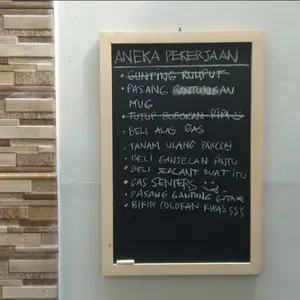 ANEKA PEKERJAAN
GUNTING RUMPUT
PASANG GANTUNGAN
MUG
TUTUP BOBOKAN PIPA
BELI ALAS GAS
TANAM ULANG PAKCOY
BELI GANJELAN PINTU
BELI SEALANT BUAT ITU
GAS SENTERS
PASANG GANTUNG GITAR
BIKIN COLOKAN